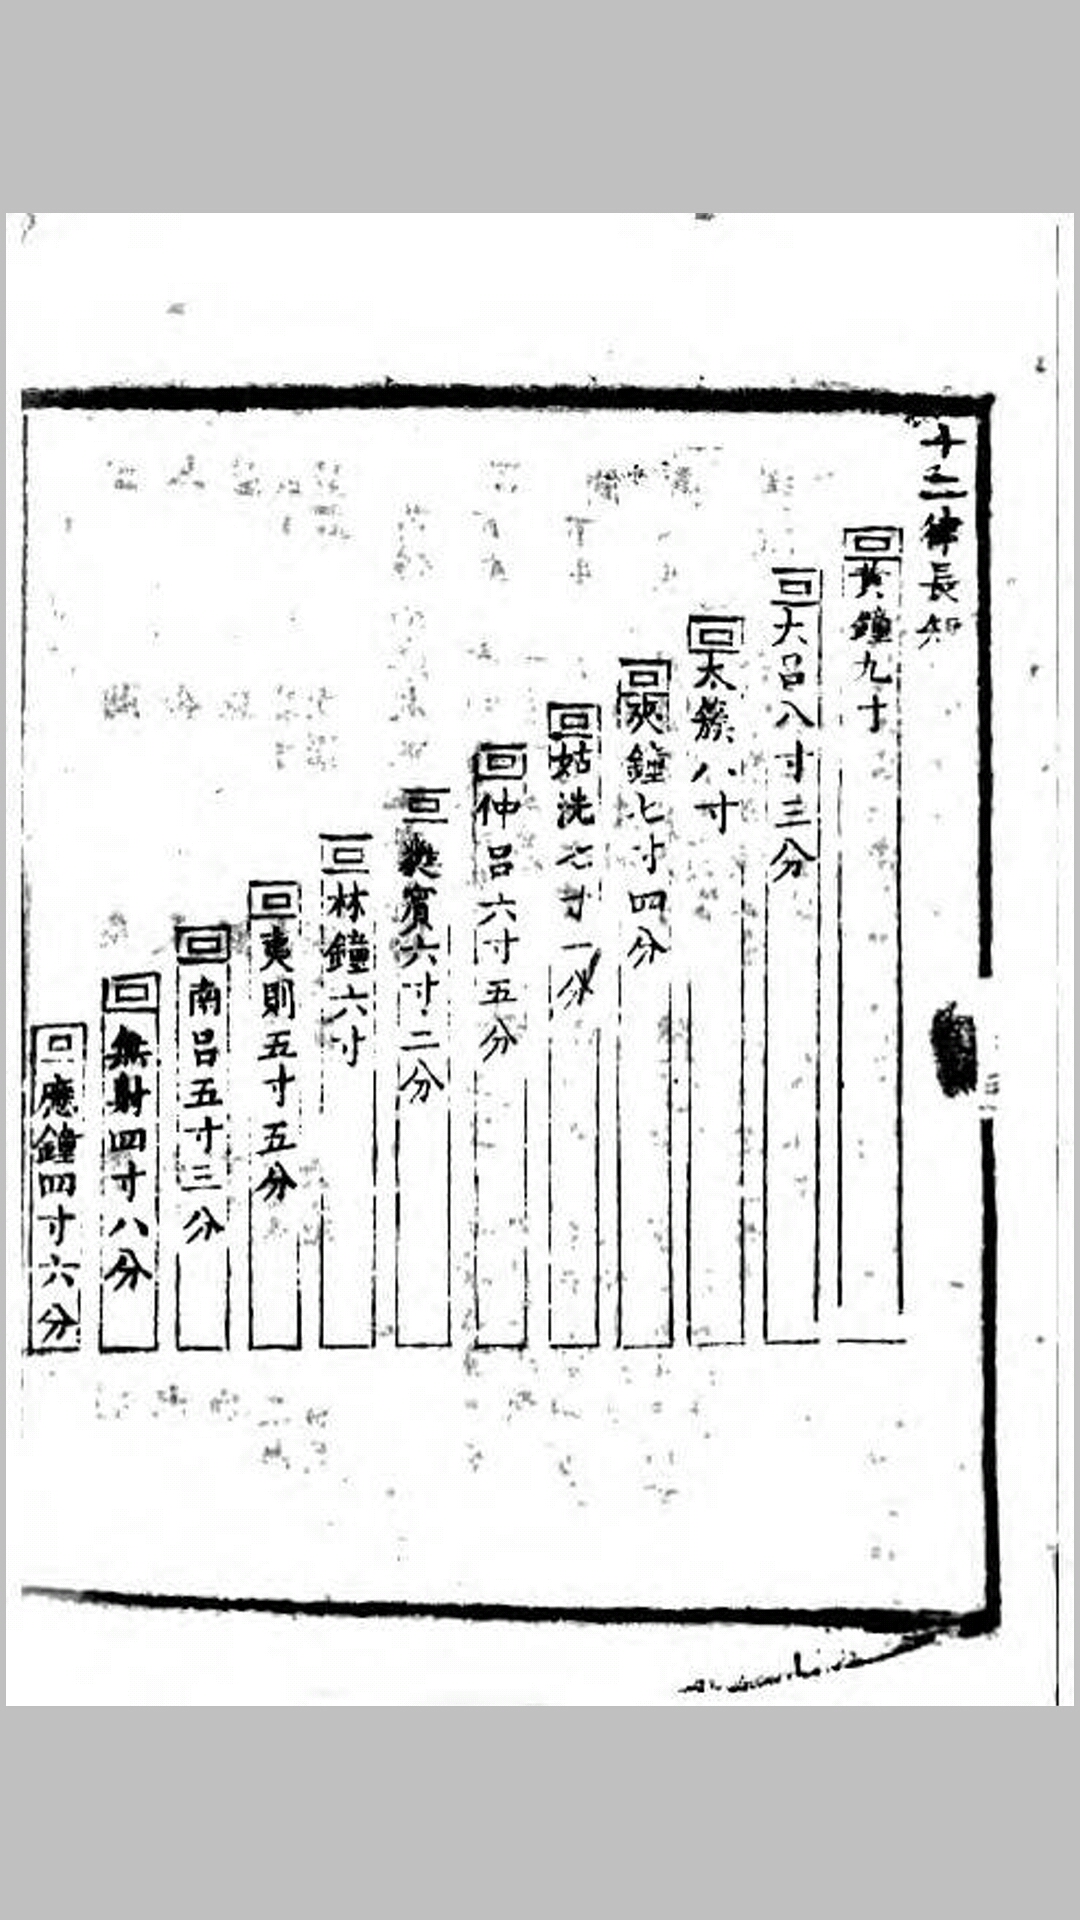 十二律長短
黃鐘九寸
大呂八寸三分
太簇八寸
夾鐘七寸四分
姑洗七寸一分
仲呂六寸五分
蕤賓六寸二分
林鐘六寸
夷則五寸五分
南呂五寸三分
無射四寸八分
應鐘四寸六分